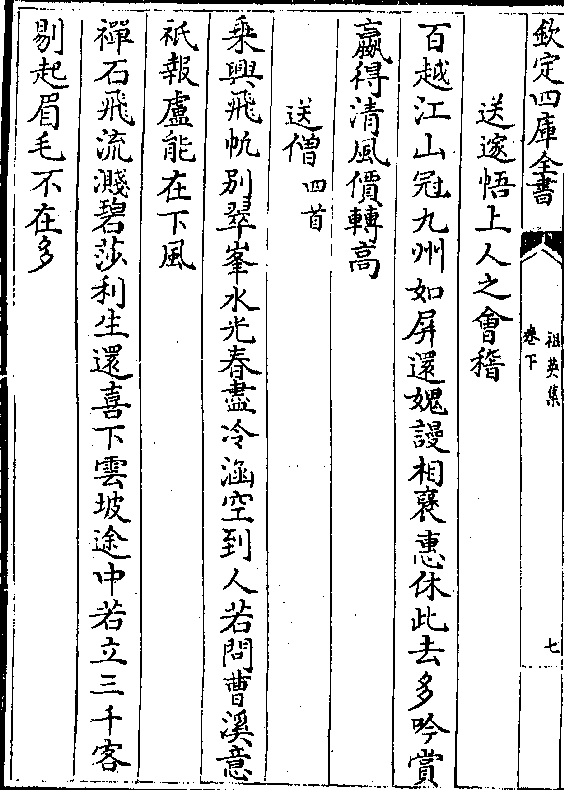 欽定四庫全書
祖英集
卷下
七
送邃悟上人之會稽
百越江山冠九州如屏還媿謾相襃惠休此去多吟賞
嬴得清風價轉高
送僧四首
乗興飛帆别翠峯水光春盡冷涵空到人若問曹溪意
祇報盧能在下風
禪石飛流濺碧莎利生還喜下雲坡途中若立三千客
剔起眉毛不在多